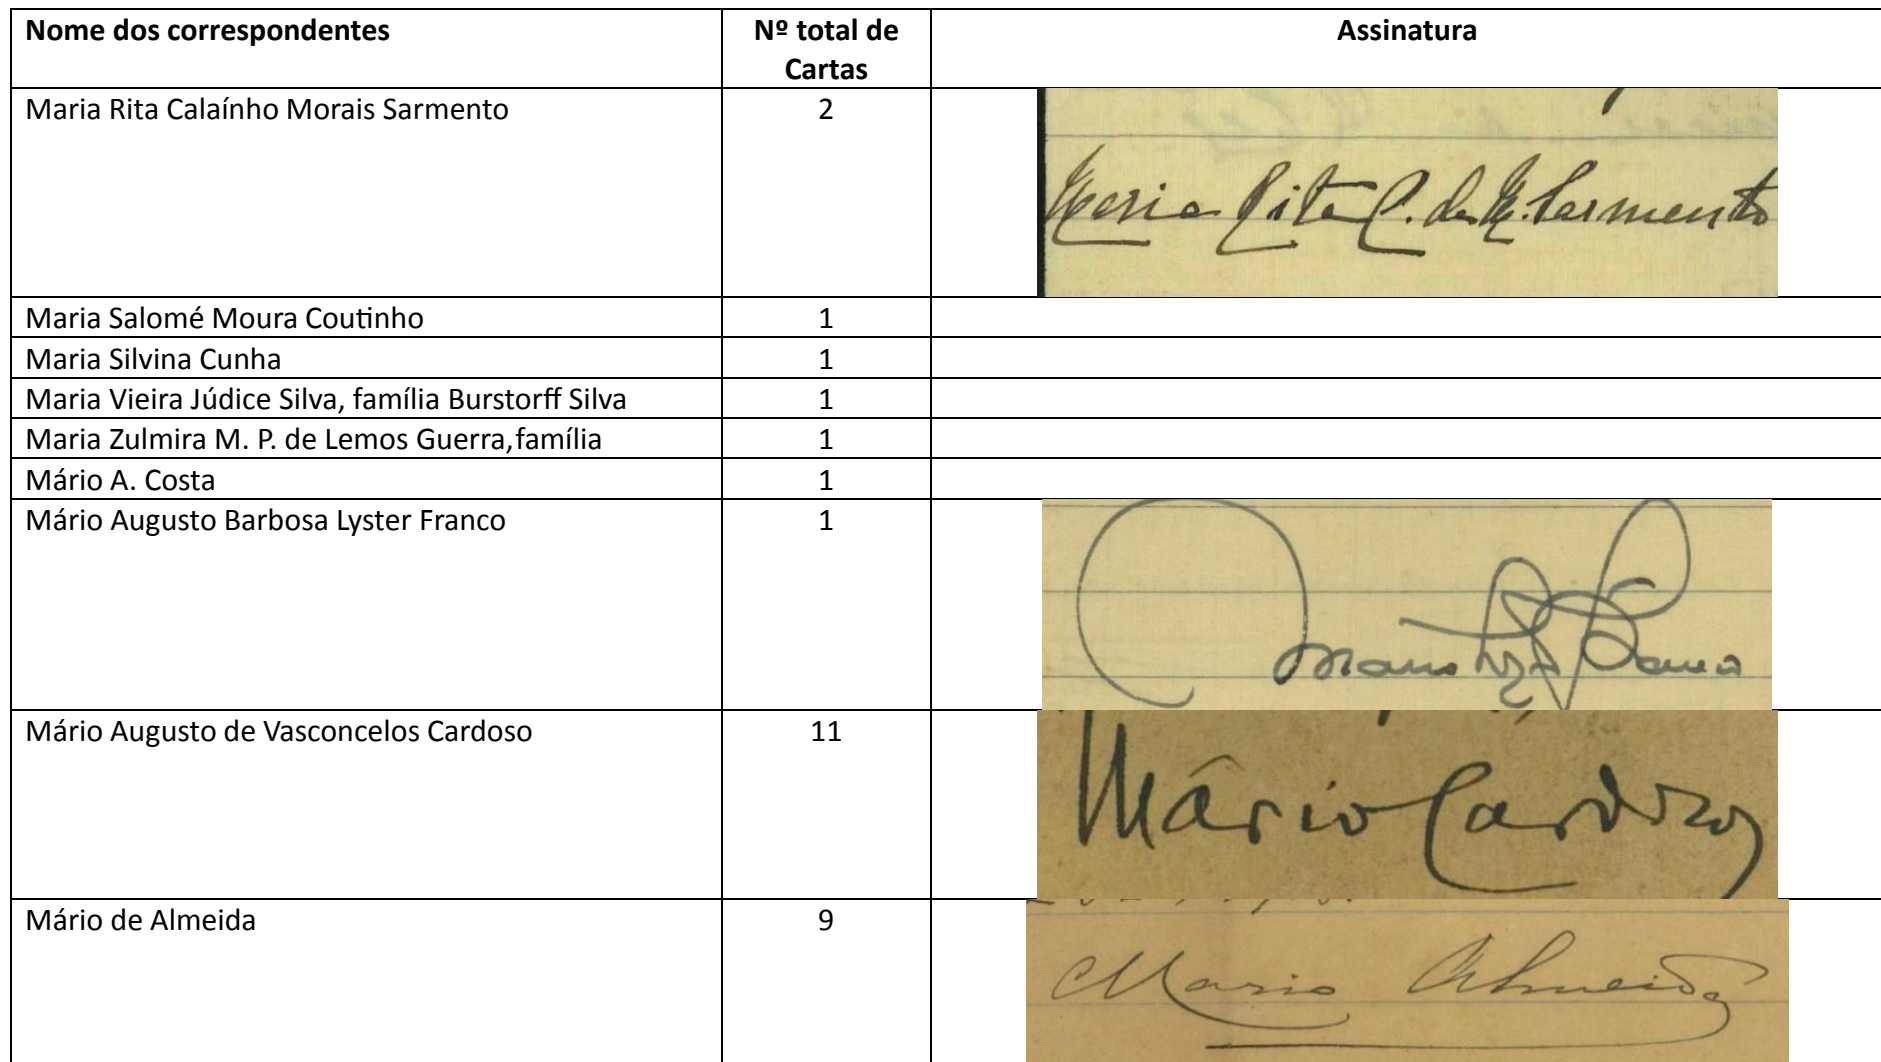 Nome dos correspondentes
Nº total de Cartas
Assinatura
Maria Rita Calaínho Morais Sarmento
2
Maria Rita C. de M. Sarmento
Maria Salomé Moura Coutinho
1
Maria Silvina Cunha
1
Maria Vieira Júdice Silva, família Burstorff Silva
1
Maria Zulmira M. P. de Lemos Guerra,família
1
Mário A. Costa
1
Mário Augusto Barbosa Lyster Franco
1
Mario
Mário Augusto de Vasconcelos Cardoso
11
Mário Cardozo
Mário de Almeida
9
Mario Almeida